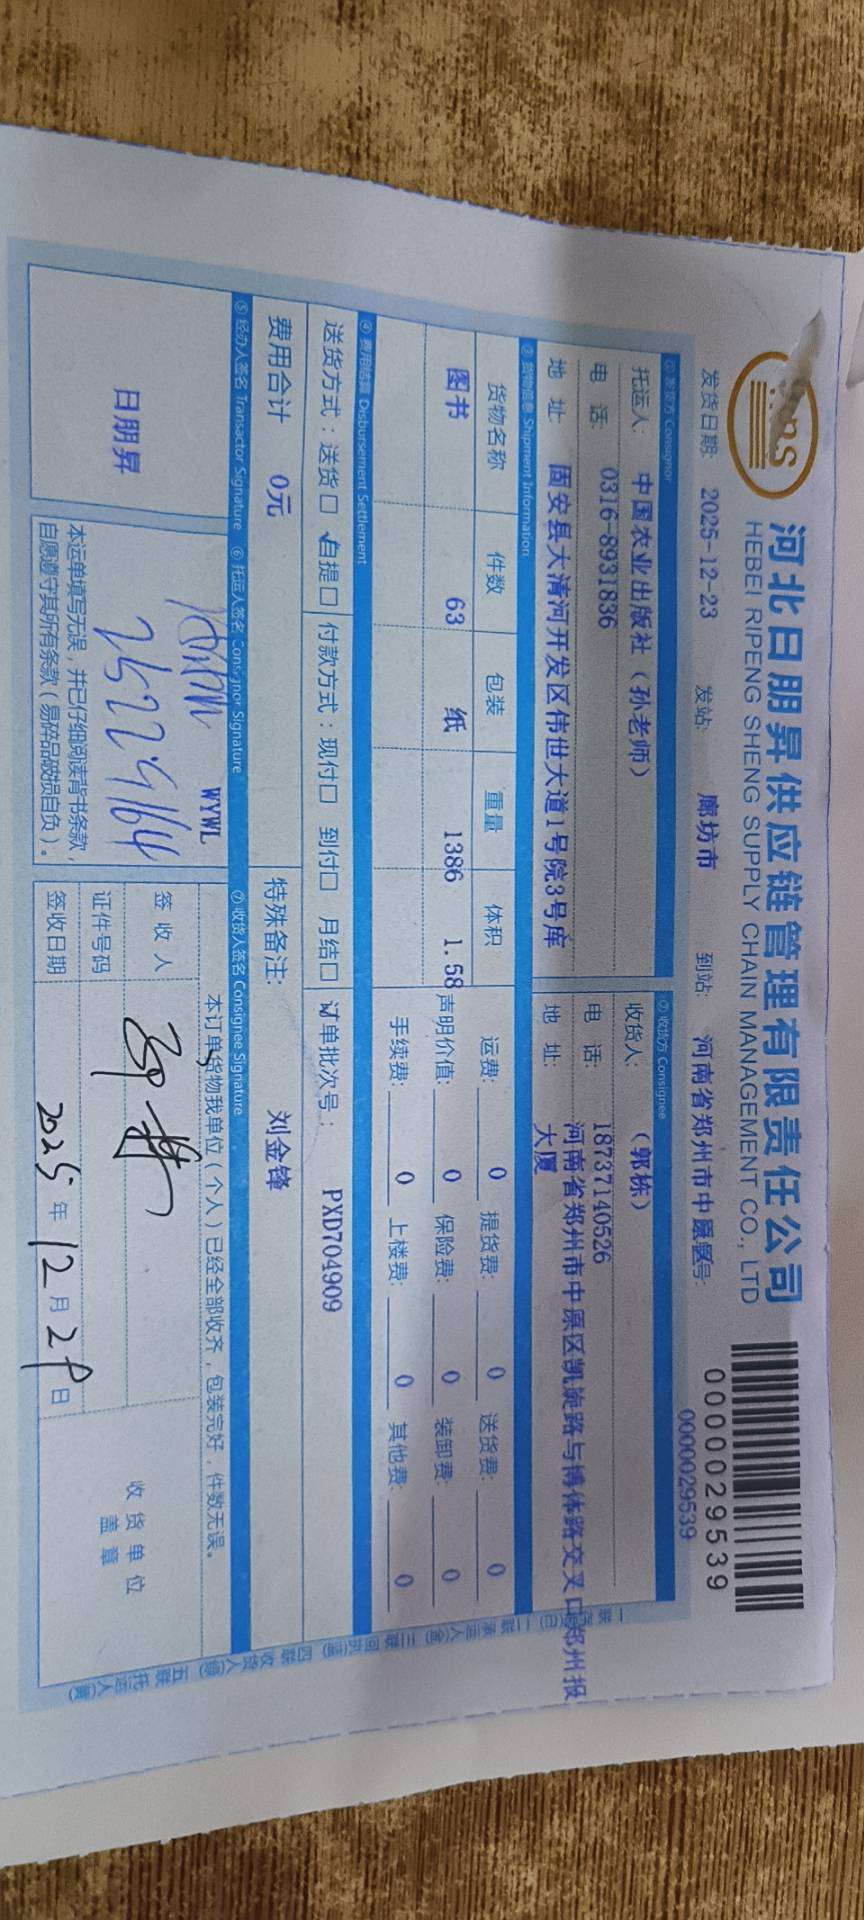 河北日朋昇供应链管理有限责任公司
HEBEI RIPENG SHENG SUPPLY CHAIN MANAGEMENT CO., LTD
0000029539
0000029539
发货日期: 2025-12-23 发站: 廊坊市 到站: 河南省郑州市中原区
① 发货方 Consignor
托运人: 中国农业出版社（孙老师）
电 话: 0316-8931836
地 址: 固安县大清河开发区伟世大道1号院3号库
② 收货方 Consignee
收货人: （郭栋）
电 话: 18737140526
地 址: 河南省郑州市中原区凯旋路与博体路交叉口郑州报
大厦
③ 货物信息 Shipment Information
货物名称 件数 包装 重量 体积
图书 63 纸 1386 1.58
运费: 0 提货费: 0 送货费: 0
声明价值: 0 保险费: 0 装卸费: 0
手续费: 0 上楼费: 0 其他费: 0
④ 费用结算 Disbursement Settlement
送货方式：送货□ 自提□ 付款方式：现付□ 到付□ 月结□ 订单批次号： PXD704909
费用合计 0元 特殊备注: 刘金锋
⑤ 经办人签名 Transactor Signature
日朋昇
⑥ 托运人签名 Consignor Signature
WYWL
本运单填写无误，并已仔细阅读背书条款，
自愿遵守其所有条款（易碎品破损自负）。
⑦ 收货人签名 Consignee Signature
本订单货物我单位（个人）已经全部收齐，包装完好，件数无误。
签 收 人
证件号码
签收日期 2025年12月29日
收货单位
盖章